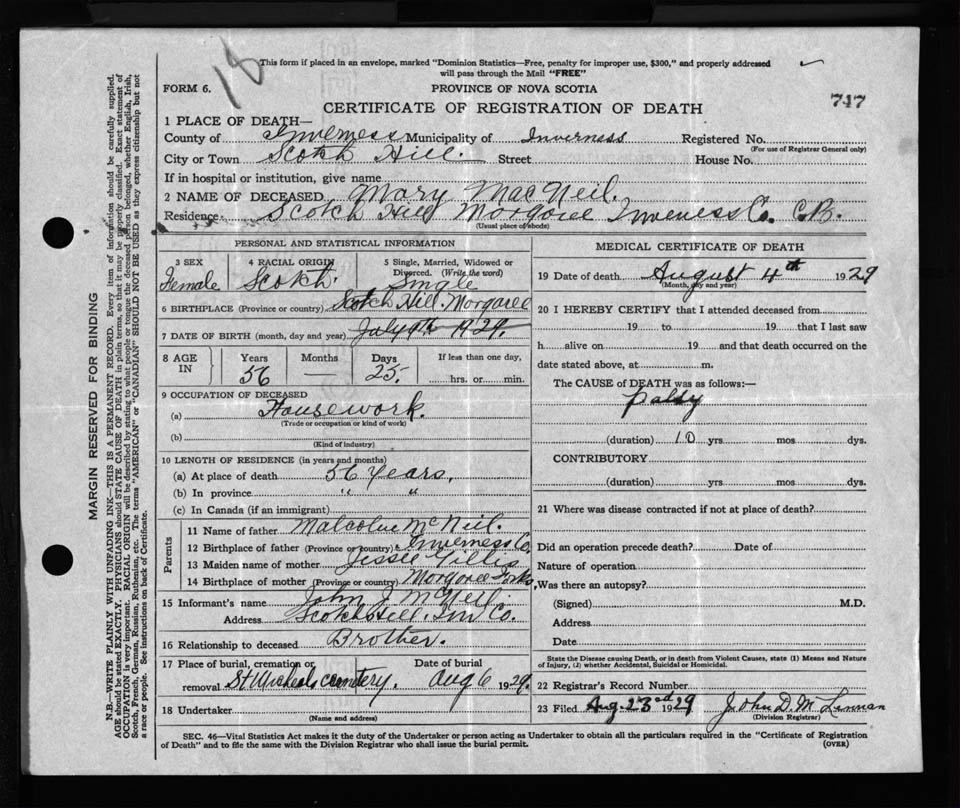 18
This form if placed in an envelope, marked "Dominion Statistics—Free, penalty for improper use, $300," and properly addressed
will pass through the Mail "FREE"
FORM 6.
PROVINCE OF NOVA SCOTIA
747
CERTIFICATE OF REGISTRATION OF DEATH
1 PLACE OF DEATH—
County of Inverness Municipality of Inverness Registered No.
(For use of Registrar General only)
City or Town Scotch Hill. Street House No.
If in hospital or institution, give name
2 NAME OF DECEASED Mary MacNeil.
Residence Scotch Hill Morgaree Inverness Co. C.B.
(Usual place of abode)
PERSONAL AND STATISTICAL INFORMATION
3 SEX 4 RACIAL ORIGIN 5 Single, Married, Widowed or
Divorced. (Write the word)
Female Scotch. Single
6 BIRTHPLACE (Province or country) Scotch Hill. Morgaree
7 DATE OF BIRTH (month, day and year) July 9th 1929.
8 AGE IN Years Months Days If less than one day,
56 — 25. hrs. or min.
9 OCCUPATION OF DECEASED
(a) Housework.
(Trade or occupation or kind of work)
(b)
(Kind of industry)
10 LENGTH OF RESIDENCE (in years and months)
(a) At place of death 56 Years.
(b) In province " "
(c) In Canada (if an immigrant)
Parents
11 Name of father Malcolm McNeil.
12 Birthplace of father (Province or country) Inverness Co.
13 Maiden name of mother Jessie Gillis
14 Birthplace of mother (Province or country) Morgaree Forks,
15 Informant's name John J. McNeil.
Address Scotch Hill, Inv Co.
16 Relationship to deceased Brother.
17 Place of burial, cremation or Date of burial
removal St Micheals cemetery. Aug 6 1929.
18 Undertaker
(Name and address)
MEDICAL CERTIFICATE OF DEATH
19 Date of death August 4th 1929
(Month, day and year)
20 I HEREBY CERTIFY that I attended deceased from
19 to 19 that I last saw
h alive on 19 and that death occurred on the
date stated above, at m.
The CAUSE of DEATH was as follows:—
palsy
(duration) 10 yrs. mos dys.
CONTRIBUTORY
(duration) yrs. mos. dys.
21 Where was disease contracted if not at place of death?
Did an operation precede death? Date of
Nature of operation
Was there an autopsy?
(Signed) M.D.
Address
Date
State the Disease causing Death, or in death from Violent Causes, state (1) Means and Nature
of Injury, (2) whether Accidental, Suicidal or Homicidal.
22 Registrar's Record Number
23 Filed Aug. 23rd 1929 John D. McLennan
(Division Registrar)
SEC. 46—Vital Statistics Act makes it the duty of the Undertaker or person acting as Undertaker to obtain all the particulars required in the "Certificate of Registration
of Death" and to file the same with the Division Registrar who shall issue the burial permit.
(OVER)
MARGIN RESERVED FOR BINDING
N.B.—WRITE PLAINLY WITH UNFADING INK—THIS IS A PERMANENT RECORD. Every item of information should be carefully supplied.
AGE should be stated EXACTLY. PHYSICIANS should STATE CAUSE OF DEATH in plain terms, so that it may be properly classified. Exact statement of
OCCUPATION is very important. RACIAL ORIGIN will be described by stating to what people or tongue the deceased person belonged, whether English, Irish,
Scotch, French, German, Russian, Ruthenian, etc. The terms "AMERICAN" or "CANADIAN" SHOULD NOT BE USED as they express citizenship but not
a race or people. See instructions on back of Certificate.